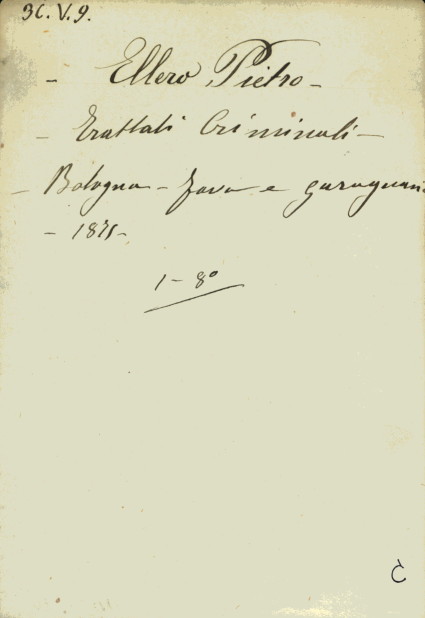 3C.V.9.
- Ellero Pietro -
- Trattati Criminali -
- Bologna - Fava e garagnani
- 1875 -
1 - 8°
C